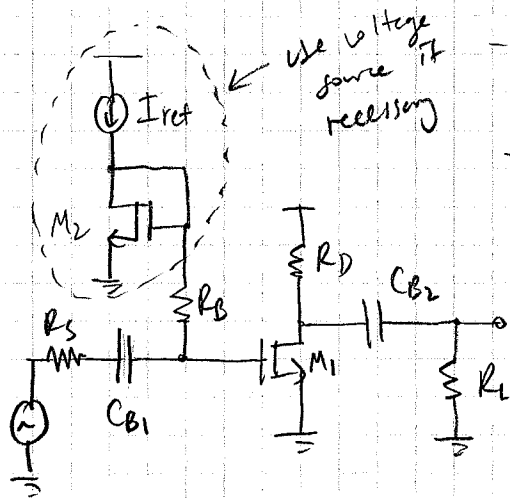 use voltage
source if
necessary
Iref
M2
RD
CB2
RB
RS
M1
RL
CB1
~